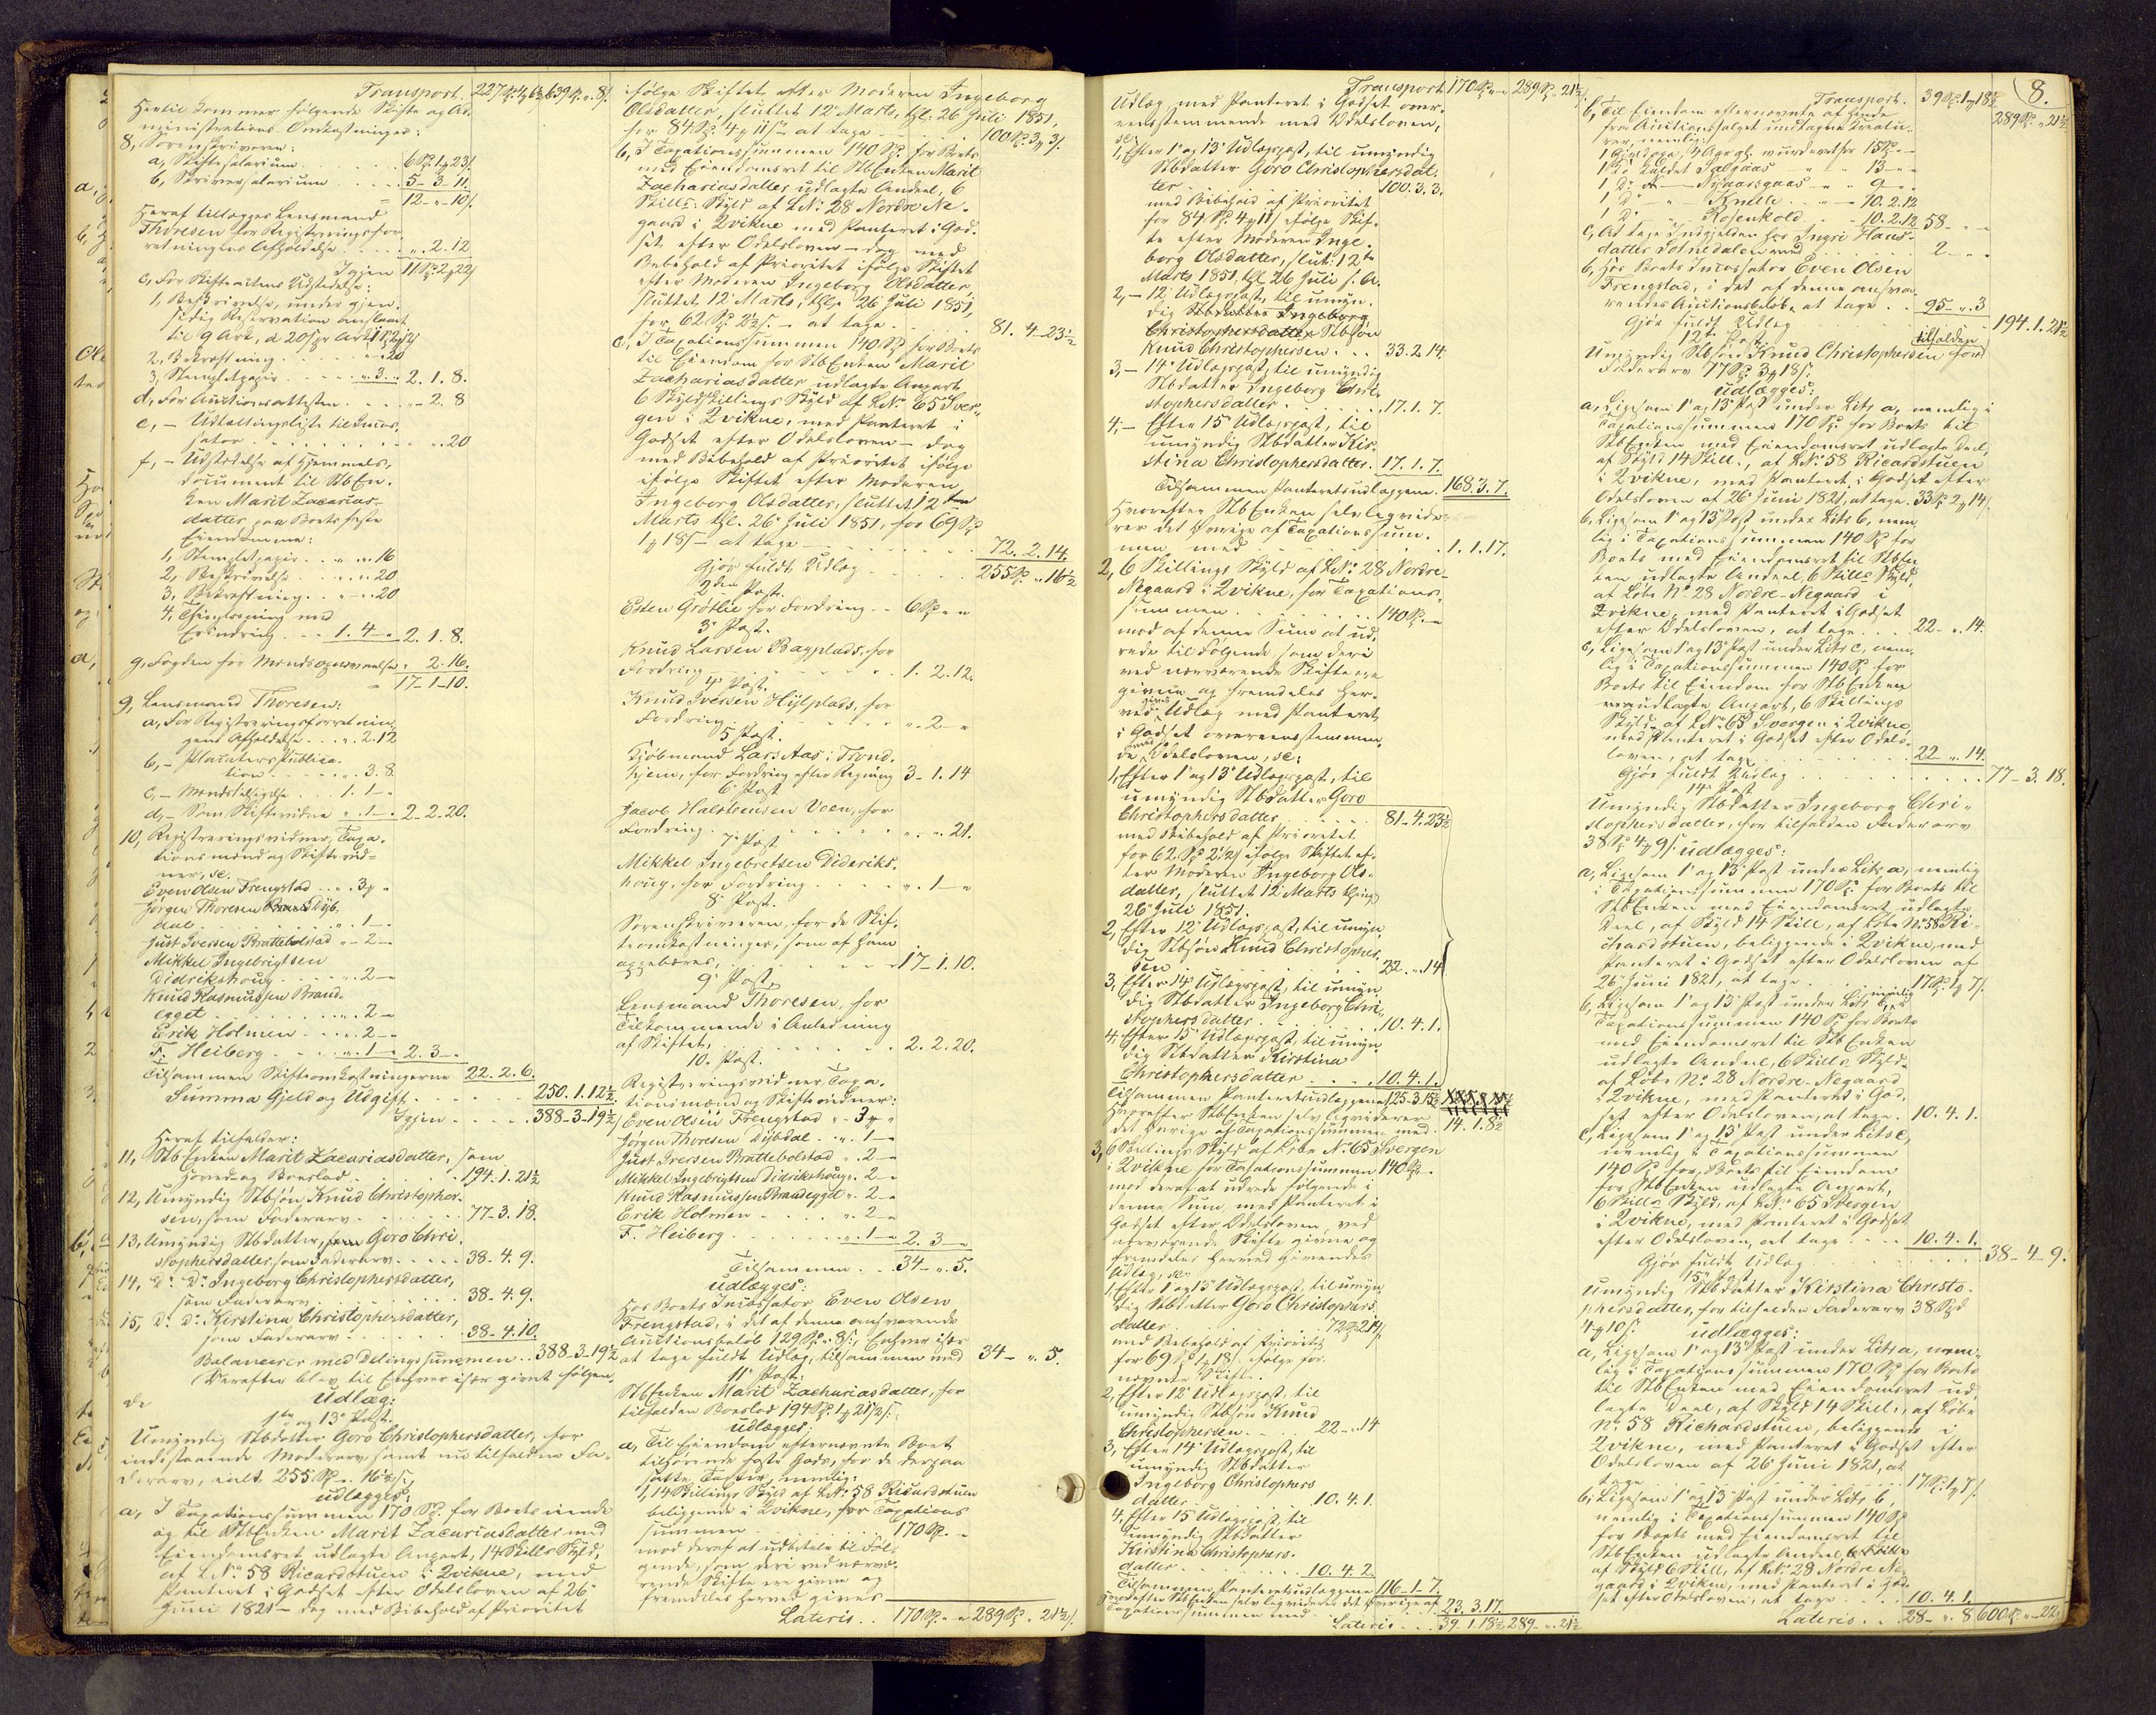 Transport. 227 Sp. 4 639 Sp. " 8 s.
Hertil kommer følgende Skifte og Ad-
ministrations Omkostninger:
8, Sorenskriveren:
a, Skiftesalarium 6 Sp. 1 23 s.
b, Skriversalarium 5 - 3 - 11.
= 12 - " - 10 s.
Heraf tillægges Lensmand
Thoresen for Registreringsfor-
retningens Afholdelse " 2. 12
Igjen 11 Sp. 2 22 s.
c, For Skifteactens Udstedelse:
1, Beskrivelse, under gjen-
sidig Reservation ansloaet
til 9 Ark, a 20 s pr Ark
2, Bekræftning " " 20
3, Stemplet papir " 3. " 2. 1. 8.
d, For Auctionsattesten " - 2. 8
e, - Udtællingsliste til Incas-
sator " " 20
f, - Udstædelse af Hjemmels-
document til StbEn-
ken Marit Zacarias-
datter paa Boets faste
Eiendomme:
1, Stemplet papir " " 16
2, Beskrivelse " " 20
3, Bekræftning " " 20
4, Thinglesning med
Erindring 1. 4 " 2. 1. 8.
g, Fogden for Mandsopnævnelse " 2. 16.
= 17 - 1 - 10.
9, Lensmand Thoresen:
a, For Registreringsforretnin-
gens Afholdelse " 2. 12
b, - Placaters Publica-
tion " 3. 8.
c, - Mandstilsigelse 1. 1 "
d, - Som Skiftevidne " 1 " 2 - 2. 20.
10, Registreringsvidner, Taxa-
tionsmænd og Skiftevid-
ner, sc.
Even Olsen Frengstad " 3 "
Jørgen Thoresen Dyb-
dal " 1 "
Just Iversen Brattebolstad " 2 "
Mikkel Ingebrigtsen
Didrikshoug " 2 "
Knud Rasmussen Brand-
egget " 2 "
Erik Holmen " 2 "
F. Heiberg " 1 " 2. 3 "
Tilsammen Skifteomkostningerne 22. 2. 6.
Summa Gjeld og Udgift 250. 1. 12½
Igjen 388 - 3 - 19½
Heraf tilfalder:
11, StbEnken Marit Zacariasdatter, som
Hoved og Boeslod 194. 1. 21½
12, Umyndig Stbsøn Knud Christopher-
sen, som Faderarv 77 - 3. 18.
13, Umyndig Stbdatter, Goro Chri-
stophersdatter, som Faderarv 38. 4. 9.
14, D: D: Ingeborg Christophersdatter,
som Faderarv 38. 4. 9.
15, D: D: Kirstina Christophersdatter,
som Faderarv 38 - 4. 10.
Balancerer med Delingssummen 388 - 3 - 19½
Derefter blev til Enhver især givet følgen-
de Udlæg:
1ste og 13de Post.
Umyndig Stbdatter Goro Christophersdatter, for
indestaaende Moderarv samt nu tilfalden Fa-
derarv, ialt 255 Sp. " 16½ s.,
udlægges:
a, I Taxationssummen 170 Sp. for Boets eiende
og til StbEnken Marit Zacariasdatter med
Eiendomsret udlagte Anpart, 14 Skills Skyld,
af L.No: 58 Ricardstuen i Qvikne, med
Panteret i Godset efter Odelsloven af 26de
Juni 1821 - dog med Bibehold af Prioritet
ifølge Skiftet efter Moderen Ingeborg
Olsdatter, sluttet 12te Marts, thgl. 26 Juli 1851,
for 84 Sp. 4 11 s - at tage 100 Sp. 3 3 s.
b, I Taxationssummen 140 Sp. for Boets
med Eiendomsret til StbEnken Marit
Zachariasdatter udlagte Andeel, 6
Skills: Skyld af L.No: 28 Nordre Ne-
gaard i Qvikne med Panteret i God-
set efter Odelsloven - dog med
Bibehold af Prioritet ifølge Skiftet
efter Moderen Ingeborg Olsdatter,
sluttet 12 Marts, thgl. 26 Juli 1851,
for 62 Sp. 2½ s. - at tage 81. 4 - 23½
c, I Taxationssummen 140 Sp. for Boets
til Eiendom for StbEnken Marit
Zachariasdatter udlagte Anpart
6 Skyldskillings Skyld af L.No: 65 Sver-
gen i Qvikne, med Panteret i
Godset efter Odelsloven - dog
med Bibehold af Prioritet ifølge
ifølge Skiftet efter Moderen
Ingeborg Olsdatter, sluttet 12te
Marts thgl. 26 Juli 1851, for 69 Sp.
1 18 s - at tage 72. 2. 14.
Gjør fuldt Udlæg 255 Sp. " 16½
2den Post.
Esten Grøtlie for Fordring 6 Sp. " "
3de Post.
Knud Larsen Bagplads, for
Fordring 1. 2. 12.
4de Post.
Knud Iversen Hylplads, for
Fordring " 2 "
5 Post.
Kjøbmand Lars Aas i Trond-
hjem, for Fordring efter Regning 3 - 1. 14
6 Post
Jacob Halstensen Voen, for
Fordring " " 21.
7 Post
Mikkel Ingebretsen Dideriks-
houg, for Fordring " 1 "
8 Post.
Sorenskriveren, for de Skif-
teomkostninger, som af ham
oppebæres, 17 - 1. 10.
9 Post
Lensmand Thoresen, for
Tilkommende i Anledning
af Skiftet, 2. 2. 20.
10. Post.
Registreringsvidner, Taxa-
tionsmænd og Skiftevidner:
Even Olsen Frengstad " 3 "
Jørgen Thoresen Dybdal " 1 "
Just Iversen Brattebolstad " 2 "
Mikkel Ingebrigtsen Didrikshoug " 2 "
Knud Rasmussen Brandegget " 2 "
Erik Holmen " 2 "
F. Heiberg " 1 " 2. 3 "
Tilsammen 34 - " 5.
udlægges:
Hos Boets Incassator Even Olsen
Frengstad, i det af denne ansvarende
Auctionsbeløb 129 Sp. " 8 s., Enhver især
at tage fuldt Udlæg, tilsammen med 34 - " 5.
11 Post.
StbEnken Marit Zachariasdatter, for
tilfalden Boeslod 194 Sp. 1 21½ s.,
udlægges:
a, Til Eiendom efternævnte Boet
tilhørende faste Gods, for de derpaa
satte Taxter, nemlig:
1, 14 Skillings Skyld af L.No: 58 Ricardstuen
beliggende i Qvikne, for Taxations
summen 170 Sp. "
mod deraf at udbetale til Føl-
gende, som deri ved nærvæ-
rende Skifte ere givne og
fremdeles herved gives
Lateris 170 Sp. " " 289 Sp. " 21½ s.
Transport 170 Sp. " " 289 Sp. " 21½
Udlæg med Panteret i Godset over-
eensstemmende med Odelsloven,
sc.
1, Efter 1 og 13 Udlægspost, til umyndig
Stbdatter Goro Christophersdat-
ter 100. 3. 3.
med Bibehold af Prioritet
for 84 Sp. 4 11 s ifølge Skif-
te efter Moderen Inge-
borg Olsdatter, slut: 12te
Marts 1851, thgl 26 Juli s. A.
2, - 12 Udlægspost, til umyn-
dig Stbdatter Ingeborg
Christophersdatter Stbsøn
Knud Christophersen 33. 2. 14.
3, - 14 Udlægspost, til umyndig
Stbdatter Ingeborg Chri-
stophersdatter 17. 1. 7.
4, - Efter 15 Udlægspost, til
umyndig Stbdatter Kir-
stina Christophersdatter. 17. 1. 7.
Tilsammen Panteretsudlæggene 168. 3. 7.
Hvorefter StbEnken selv liqvide-
rer det Øvrige af Taxationssum-
men med 1. 1. 17.
2, 6 Skillings Skyld af L.No: 28 Nordre-
Negaard i Qvikne, for Taxations-
summen 140 Sp. "
mod af denne Sum at ud-
rede til Følgende som deri
ved nærværende Skifte ere
givne og fremdeles her-
ved gives Udlæg med Panteret
i Godset overeensstemmen-
de med Odelsloven, sc:
1, Efter 1 og 13 Udlægspost, til
umyndig Stbdatter Goro
Christophersdatter 81 - 4. 23½
med Bibehold af Prioritet
for 62 Sp. 2½ s ifølge Skiftet ef-
ter Moderen Ingeborg Ols-
datter, sluttet 12 Marts thgl.
26 Juli 1851.
2, Efter 12 Udlægspost, til umyn-
dig Stbsøn Knud Christopher-
sen 22. " 14
3, Efter 14 Udlægspost, til umyn-
dig Stbdatter Ingeborg Chri-
stophersdatter 10. 4. 1.
4, Efter 15 Udlægspost, til umyn-
dig Stbdatter Kirstina
Christophersdatter 10. 4. 1.
Tilsammen Panteretsudlæggene 125 - 3. 15½
Hvorefter StbEnken selv liqviderer
det Øvrige af Taxationssummen med 14. 1. 8½
3, 6 Skillings Skyld af Løbe No. 65 Svergen
i Qvikne for Taxationssummen 140 Sp. "
mod deraf at udrede følgende i
denne Sum, med Panteret i
Godset efter Odelsloven, ved
nærværende Skifte givne og
fremdeles herved givendes
Udlæg, sc.
1, Efter 1 og 13 Udlægspost, til umyn-
dig Stbdatter Goro Christophers-
datter 72 Sp. 2 14 s.
med Bibehold af Prioritet
for 69 Sp. 1 18 s. ifølge for-
nævnte Skifte.
2, Efter 12 Udlægspost, til
umyndig Stbsøn Knud
Christophersen 22 - " 14
3, Efter 14 Udlægspost, til
umyndig Stbdatter
Ingeborg Christophers
datter 10. 4. 1.
4, Efter 15 Udlægspost, til
umyndig Stbdatter
Kirstina Christophers-
datter 10. 4. 2.
Tilsammen Panteretsudlæggene 116 - 1 - 7.
Hvorefter StbEnken selv liqviderer det Øvrige af
Taxationssummen med 23. 3. 17.
Lateris 39 - 1. 18½ 289 - " 21½
8.
Transport. 39 Sp. 1 18½ 289 Sp. " 21½
b, Til Eiendom efternævnte af hende
fra Auctionssalget undtagne Creatu-
rer, nemlig:
1 vurderet for 15 Sp. "
1 Ko kaldet Dalgaas " 13 " "
1 D: " Nyaarsgaas " 9 " "
1 D: " Knelle " 10. 2. 12
1 D: " Rosenkold " 10. 2. 12 58 - " "
c, At tage Indgjelden hos Ingri Hans-
datter Solnedalen med 2 - " "
b, Hos Boets Incassator Even Olsen
Frengstad, i det af denne ansva-
rendes Auctionsbeløb, at tage 95 - " 3
Gjør fuldt Udlæg 194. 1. 21½
12te Post
Umyndig Stbsøn Knud Christophersen for tilfalden
Faderarv 77 Sp. 3 18 s.
udlægges:
a, Ligesom 1 og 13 Post under Litr a, nemlig i
Taxationssummen 170 Sp. for Boets til
StbEnken med Eiendomsret udlagte Deel,
af Skyld 14 Skill., af L.No: 58 Ricardstuen
i Qvikne, med Panteret i Godset efter
Odelsloven af 26 Juni 1821, at tage 33 Sp. 2 14 s.
b, Ligesom 1 og 13 Post under Litr b, nem-
lig i Taxationssummen 140 Sp. for
Boets med Eiendomsret til StbEn-
ken udlagte Andeel, 6 Skills Skyld,
af Løbe No 28 Nordre-Negaard i
Qvikne, med Panteret i Godset
efter Odelsloven, at tage 22 - " 14.
c, Ligesom 1 og 13 Post under Litr c, nem-
lig i Taxationssummen 140 Sp. for
Boets til Eiendom for StbEnken
udlagte Anpart, 6 Skillings
Skyld af L.No: 65 Svergen i Qvikne,
med Panteret i Godset efter Odels-
loven, at tage 22 - " 14.
Gjør fuldt Udlæg 77 - 3. 18.
14 Post
Umyndig Stbdatter Ingeborg Chri-
stophersdatter, for tilfalden Faderarv
38 Sp. 4 9 s. udlægges:
a, Ligesom 1 og 13 Post under Litr a, nemlig
i Taxationssummen 170 Sp. for Boets til
StbEnken med Eiendomsret udlagte
Deel, af Skyld 14 Skill, af Løbe No 58 Ri-
chardstuen, beliggende i Qvikne, med
Panteret i Godset efter Odelsloven af
26 Juni 1821, at tage 17 Sp. 1 7 s.
b, Ligesom 1 og 13 Post under Litr b, nemlig i
Taxationssummen 140 Sp. for Boets
med Eiendomsret til StbEnken
udlagte Andeel, 6 Skills Skyld
af Løbe No. 28 Nordre-Negaard
i Qvikne, med Panteret i God-
set efter Odelsloven, at tage 10. 4. 1.
c, Ligesom 1 og 13 Post under Litr c,
nemlig i Taxationssummen
140 Sp. for Boets til Eiendom
for StbEnken udlagte Anpart,
6 Skills Skyld, af L.No: 65 Svergen
i Qvikne, med Panteret i Godset
efter Odelsloven, at tage 10. 4. 1.
Gjør fuldt Udlæg 38 - 4 - 9.
15 Post
Umyndig Stbdatter Kirstina Christo-
phersdatter, for tilfalden Faderarv 38 Spd
4 10 s. udlægges:
a, Ligesom 1 og 13 Post under Litr a, nem-
lig i Taxationssummen 170 Sp. for Boets
til StbEnken med Eiendomsret ud-
lagte Deel, af Skyld 14 Skill:, af Løbe
No. 58 Richardstuen, beliggende i
Qvikne, med Panteret i Godset efter
Odelsloven af 26 Juni 1821, at
tage 17 Sp. 1 7 s.
b, Ligesom 1 og 13 Post under Litr b,
nemlig i Taxationssummen 140 Sp.
for Boets med Eiendomsret til
StbEnken udlagte Andeel,
af Skyld 6 Skill, af L.No: 28 Nordre Ne-
gaard i Qvikne, med Panteret i God-
set efter Odelsloven, at tage 10. 4. 1.
Lateris 28 - " 8 600 Sp. " 22.